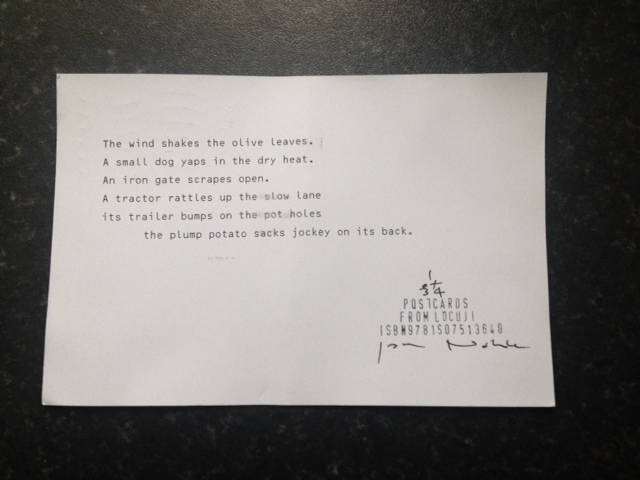 The wind shakes the olive leaves.
A small dog yaps in the dry heat.
An iron gate scrapes open.
A tractor rattles up the slow lane
its trailer bumps on the pot holes
the plump potato sacks jockey on its back.
POSTCARDS
FROM LOCUJI
ISBN9781507513640